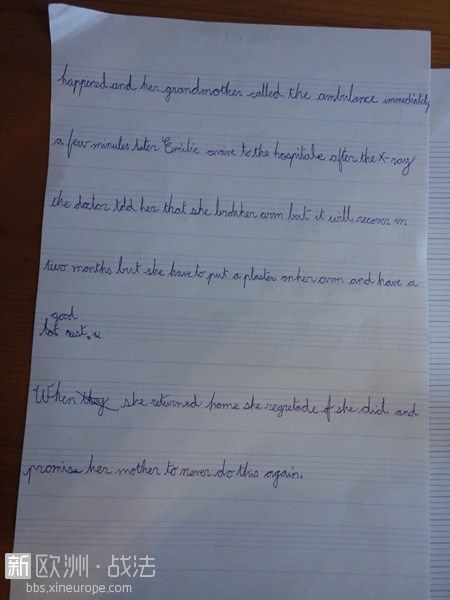 happened and her grandmother called the ambulance immediatly
a few minutes later Emilie arrive to the hospitale after the X-ray
the doctor told her that she brokher arm but it will recover in
two months but she have to put a plaster on her arm and have a
good
rest.
When they she returned home she regretade of she did and
promise her mother to never do this again.
新欧洲·战法
bbs.xineurope.com